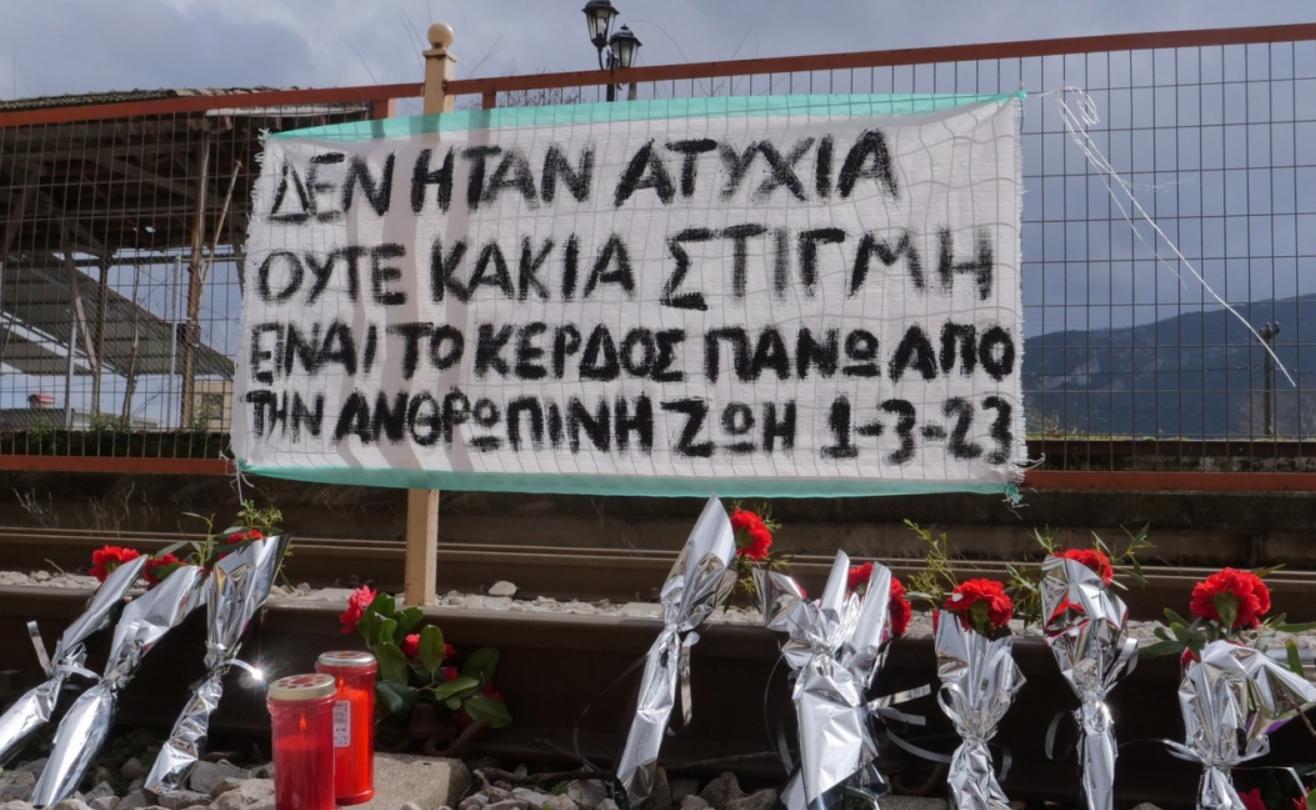 ΔΕΝ ΗΤΑΝ ΑΤΥΧΙΑ
ΟΥΤΕ ΚΑΚΙΑ ΣΤΙΓΜΗ
ΕΙΝΑΙ ΤΟ ΚΕΡΔΟΣ ΠΑΝΩ ΑΠΟ
ΤΗΝ ΑΝΘΡΩΠΙΝΗ ΖΩΗ 1-3-23